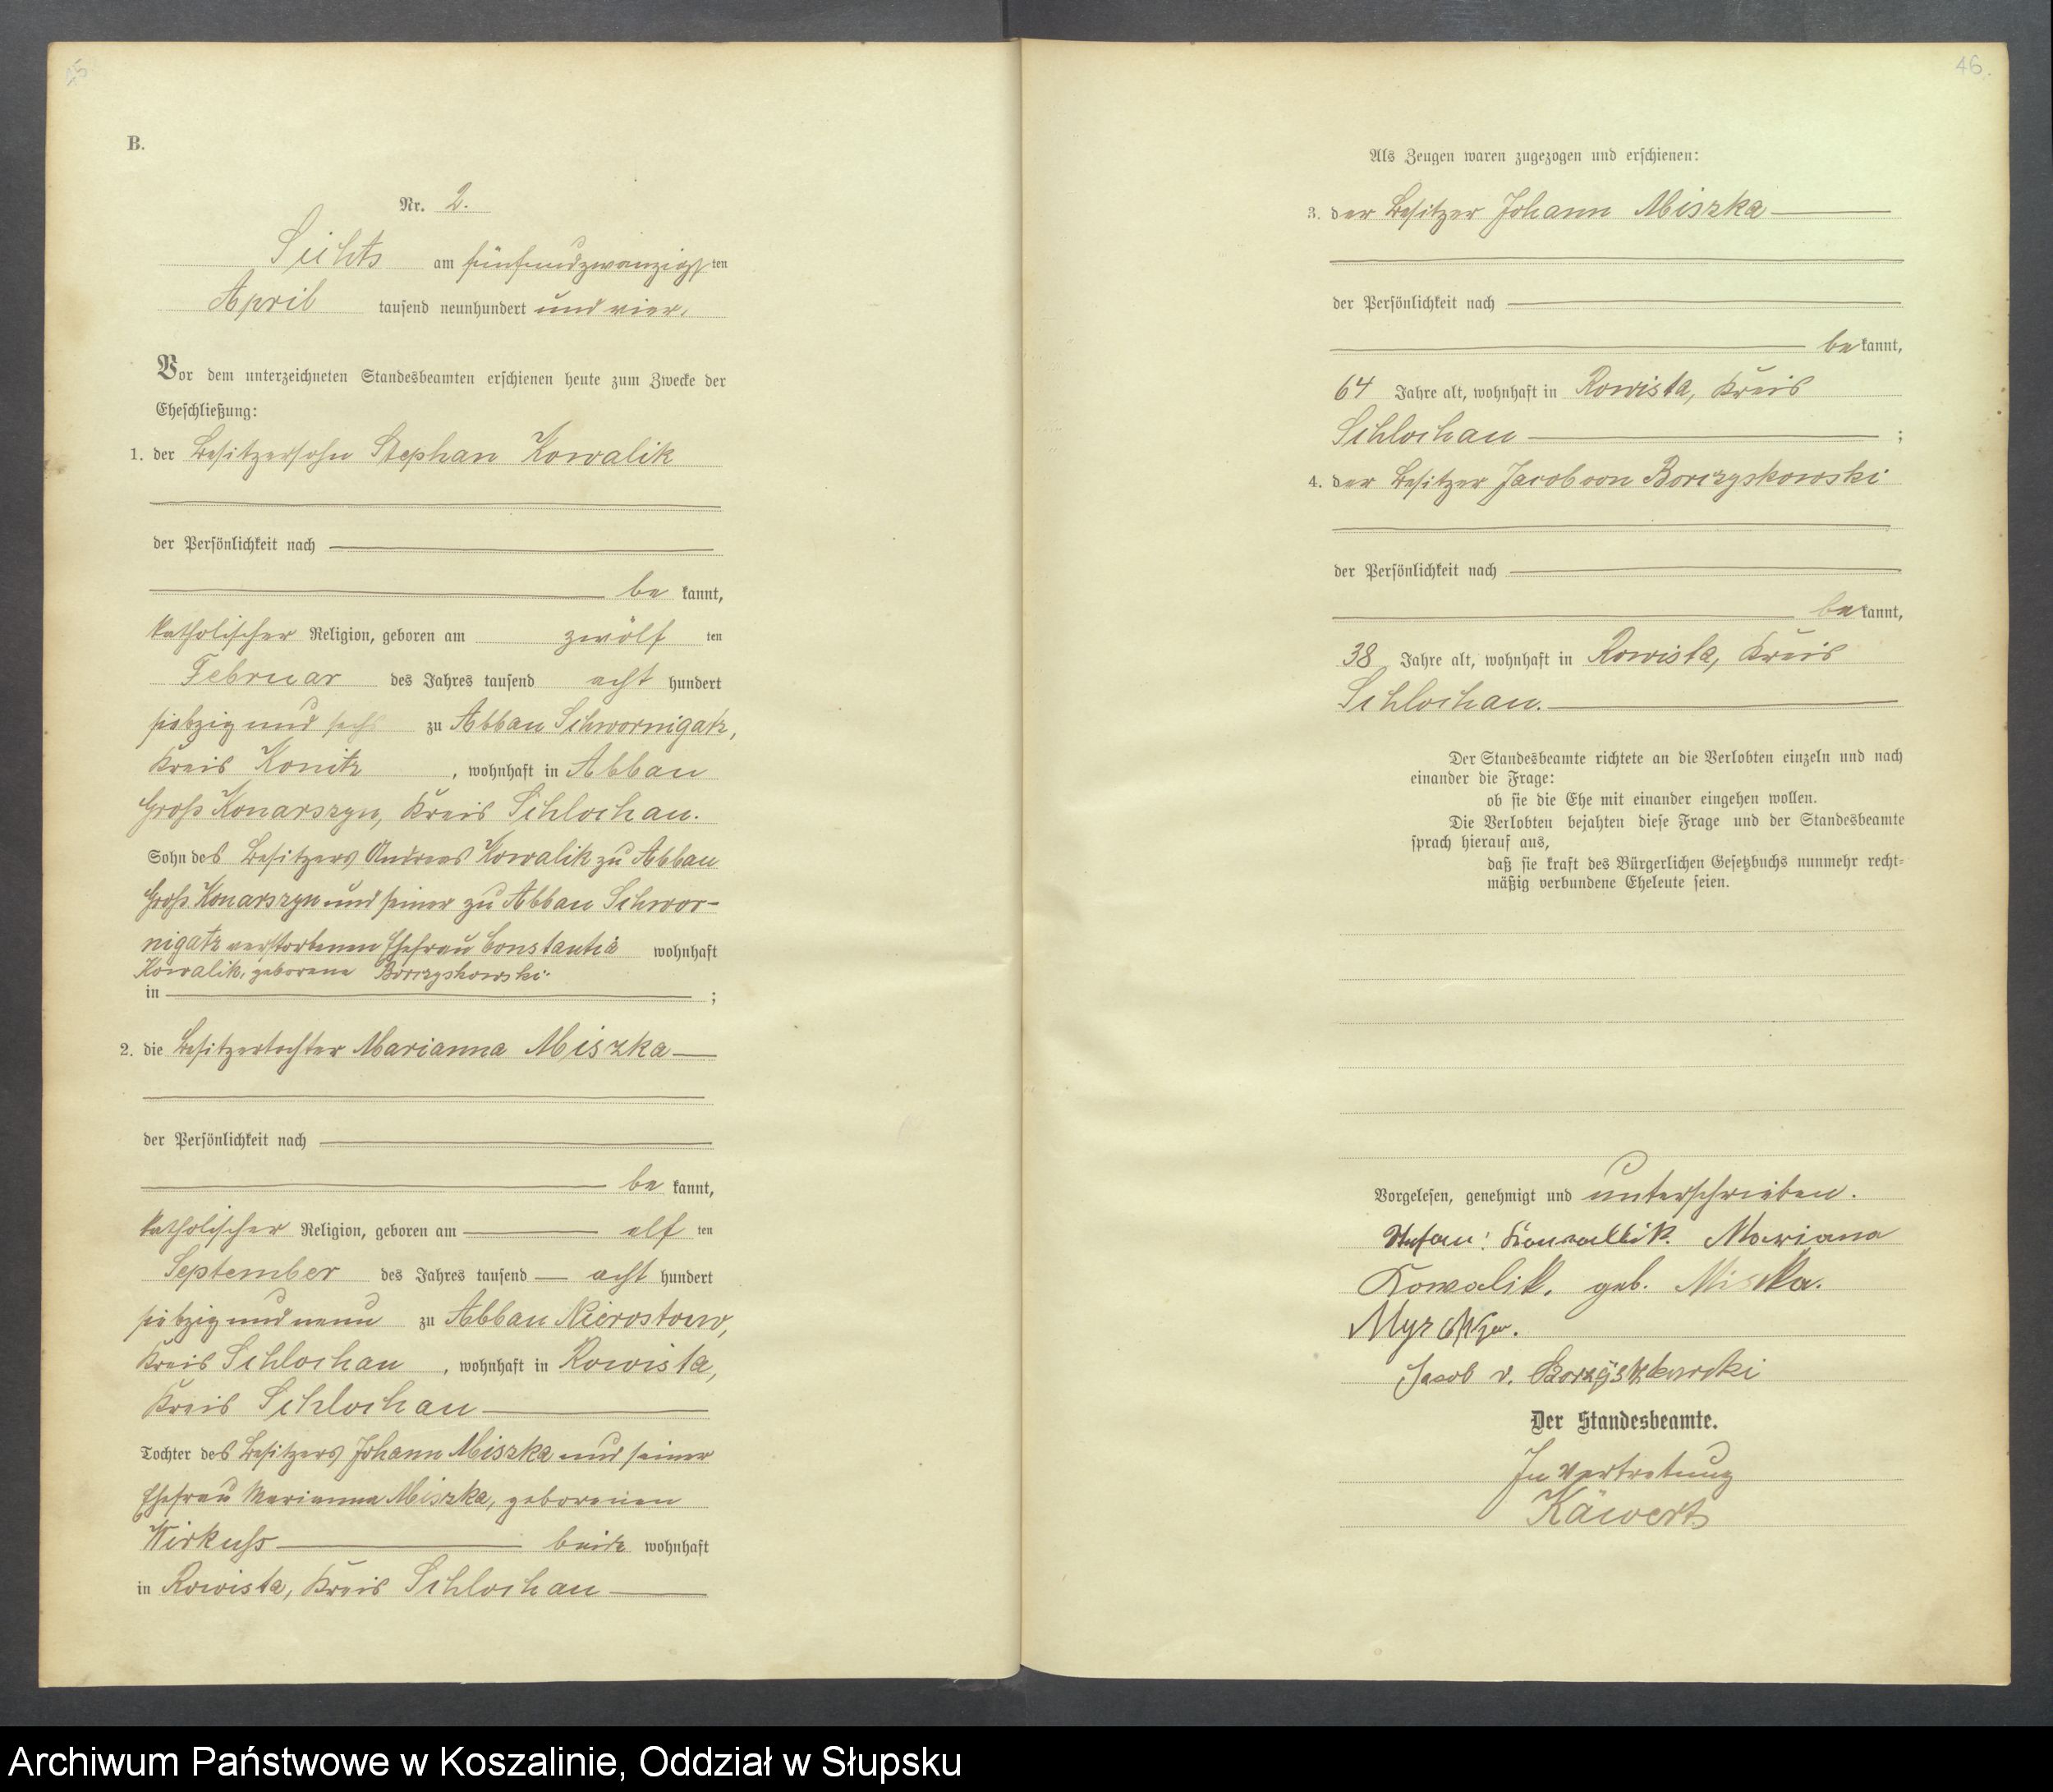 46.
B.
Nr. 2.
Sichts am fünfundzwanzigsten
April tausend neunhundert und vier.
Vor dem unterzeichneten Standesbeamten erschienen heute zum Zwecke der
Eheschließung:
1. der Besitzersohn Stephan Kowalik
der Persönlichkeit nach
be kannt,
katholischer Religion, geboren am zwölf ten
Februar des Jahres tausend acht hundert
siebzig und sechs zu Abbau Schwornigatz,
Kreis Konitz, wohnhaft in Abbau
Groß Konarszyn, Kreis Schlochau.
Sohn des Besitzers Andreas Kowalik zu Abbau
Groß Konarszyn und seiner zu Abbau Schwor-
nigatz verstorbenen Ehefrau Constantia wohnhaft
Kowalik, geborene Borczyskowski.
in ;
2. die Besitzertochter Marianna Miszka
der Persönlichkeit nach
be kannt,
katholischer Religion, geboren am elf ten
September des Jahres tausend acht hundert
siebzig und neun zu Abbau Nierostow,
Kreis Schlochau, wohnhaft in Rowista,
Kreis Schlochau
Tochter des Besitzers Johann Miszka und seiner
Ehefrau Marianna Miszka, geborenen
Wirkuss beide wohnhaft
in Rowista, Kreis Schlochau
Als Zeugen waren zugezogen und erschienen:
3. der Besitzer Johann Miszka
der Persönlichkeit nach
be kannt,
64 Jahre alt, wohnhaft in Rowista, Kreis
Schlochau ;
4. der Besitzer Jacob von Borczyskowski
der Persönlichkeit nach
be kannt,
38 Jahre alt, wohnhaft in Rowista, Kreis
Schlochau.
Der Standesbeamte richtete an die Verlobten einzeln und nach
einander die Frage:
ob sie die Ehe mit einander eingehen wollen.
Die Verlobten bejahten diese Frage und der Standesbeamte
sprach hierauf aus,
daß sie kraft des Bürgerlichen Gesetzbuchs nunmehr recht-
mäßig verbundene Eheleute seien.
Vorgelesen, genehmigt und unterschrieben.
Mariana
Kowalik, geb. Miska.
Jacob v.
Der Standesbeamte.
In Vertretung
Käwert
Archiwum Państwowe w Koszalinie, Oddział w Słupsku